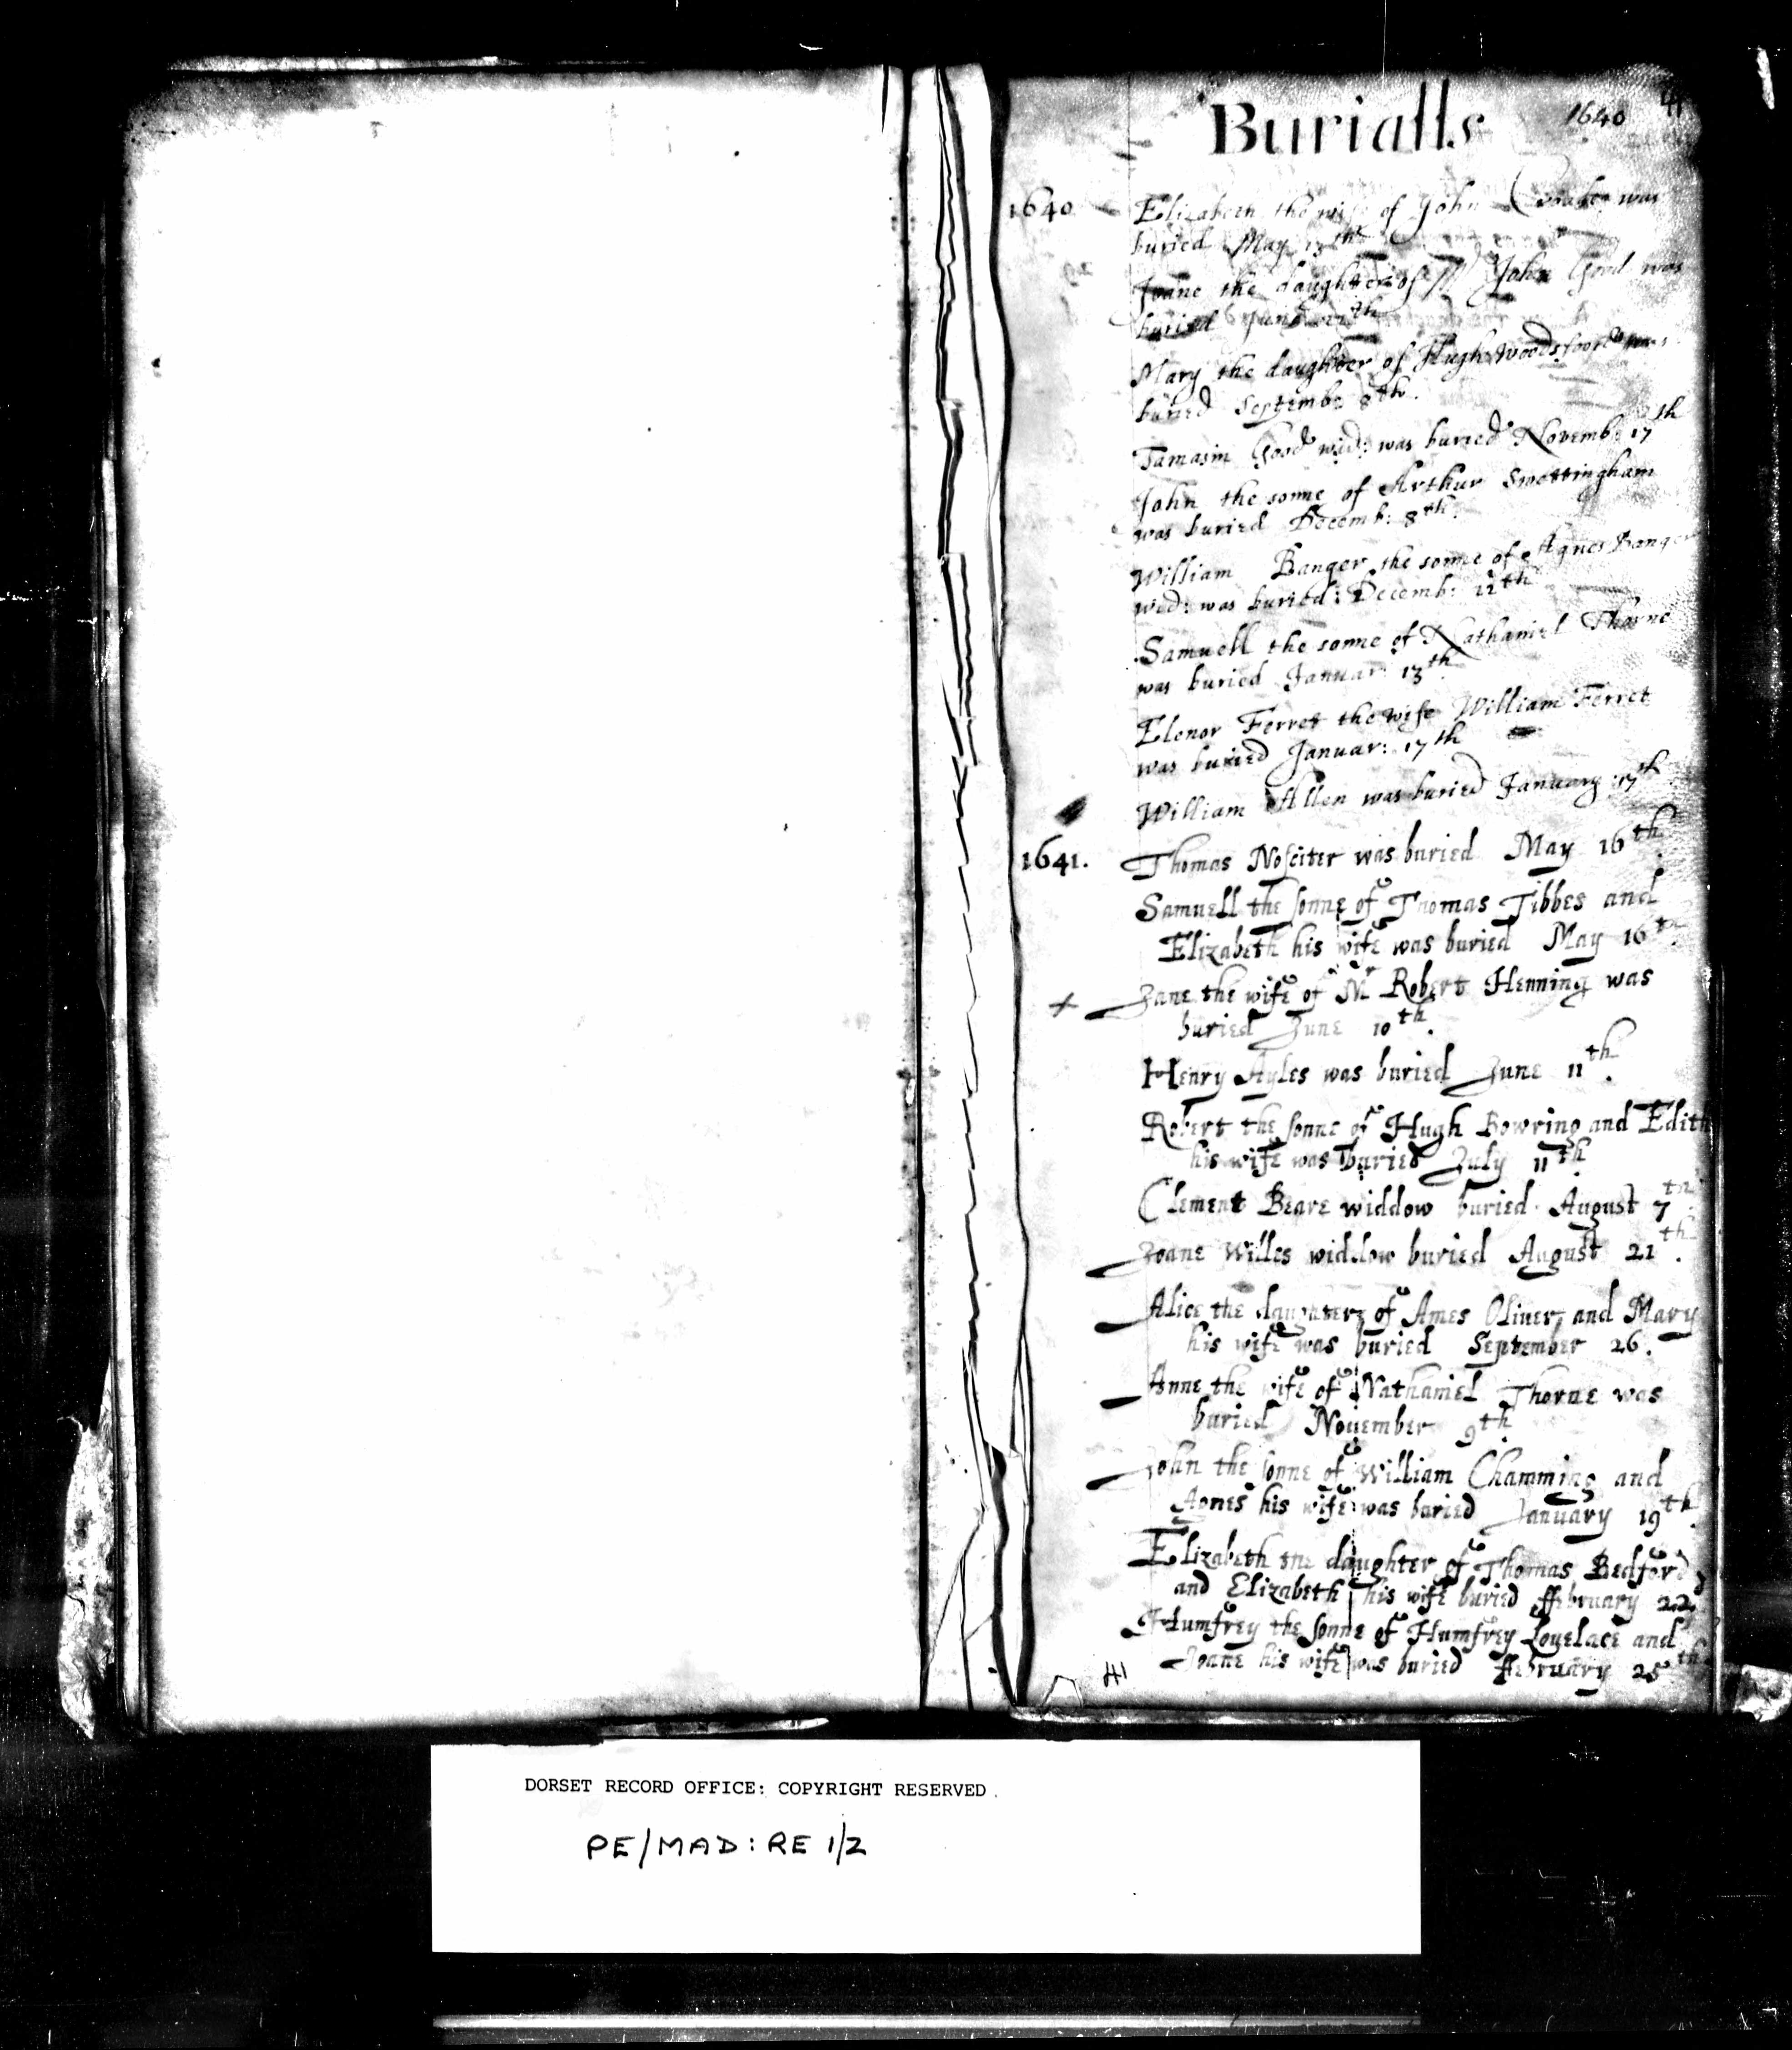 Burialls
1640
41
1640
Elizabeth the wife of John was
buried May 13th
Joane the daughter of Mr John Good was
buried June th
Mary the daughter of Hugh Woodsfoord was
buried Septemb: 8th.
Tamasin Good wid: was buried Novemb: 17th
John the sonne of Arthur Swettingham
was buried Decemb: 8th.
William Banger the sonne of Agnes Banger
wid: was buried: Decemb: 12th
Samuell the sonne of Nathaniel Thorne
was buried Januar: 13th
Elenor Ferret the wife William Ferret
was buried Januar: 17th
William Allen was buried January: 17th
1641.
Thomas Nosciter was buried May 16th.
Samuell the sonne of Thomas Tibbes and
Elizabeth his wife was buried May 16th.
Jane the wife of Mr Robert Henning was
buried June 10th.
Henry Ayles was buried June 11th.
Robert the sonne of Hugh Bowring and Edith
his wife was buried July 11th.
Clement Beare widdow buried August 7th.
Joane Willes widdow buried August 21th.
Alice the daughter of Ames Oliver and Mary
his wife was buried September 26.
Anne the wife of Nathaniel Thorne was
buried November 9th.
John the sonne of William Chamming and
Agnes his wife was buried January 19th.
Elizabeth the daughter of Thomas Bedford
and Elizabeth his wife buried ffebruary 22
Humfrey the sonne of Humfrey Lovelace and
Joane his wife was buried ffebruary 25th
41
DORSET RECORD OFFICE: COPYRIGHT RESERVED.
PE/MAD: RE 1/2